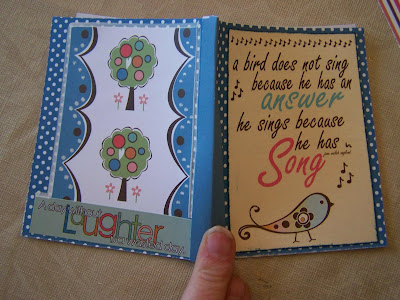 A day without
Laughter
is a wasted day
a bird does not sing
because he has an
answer
he sings because
he has
Song